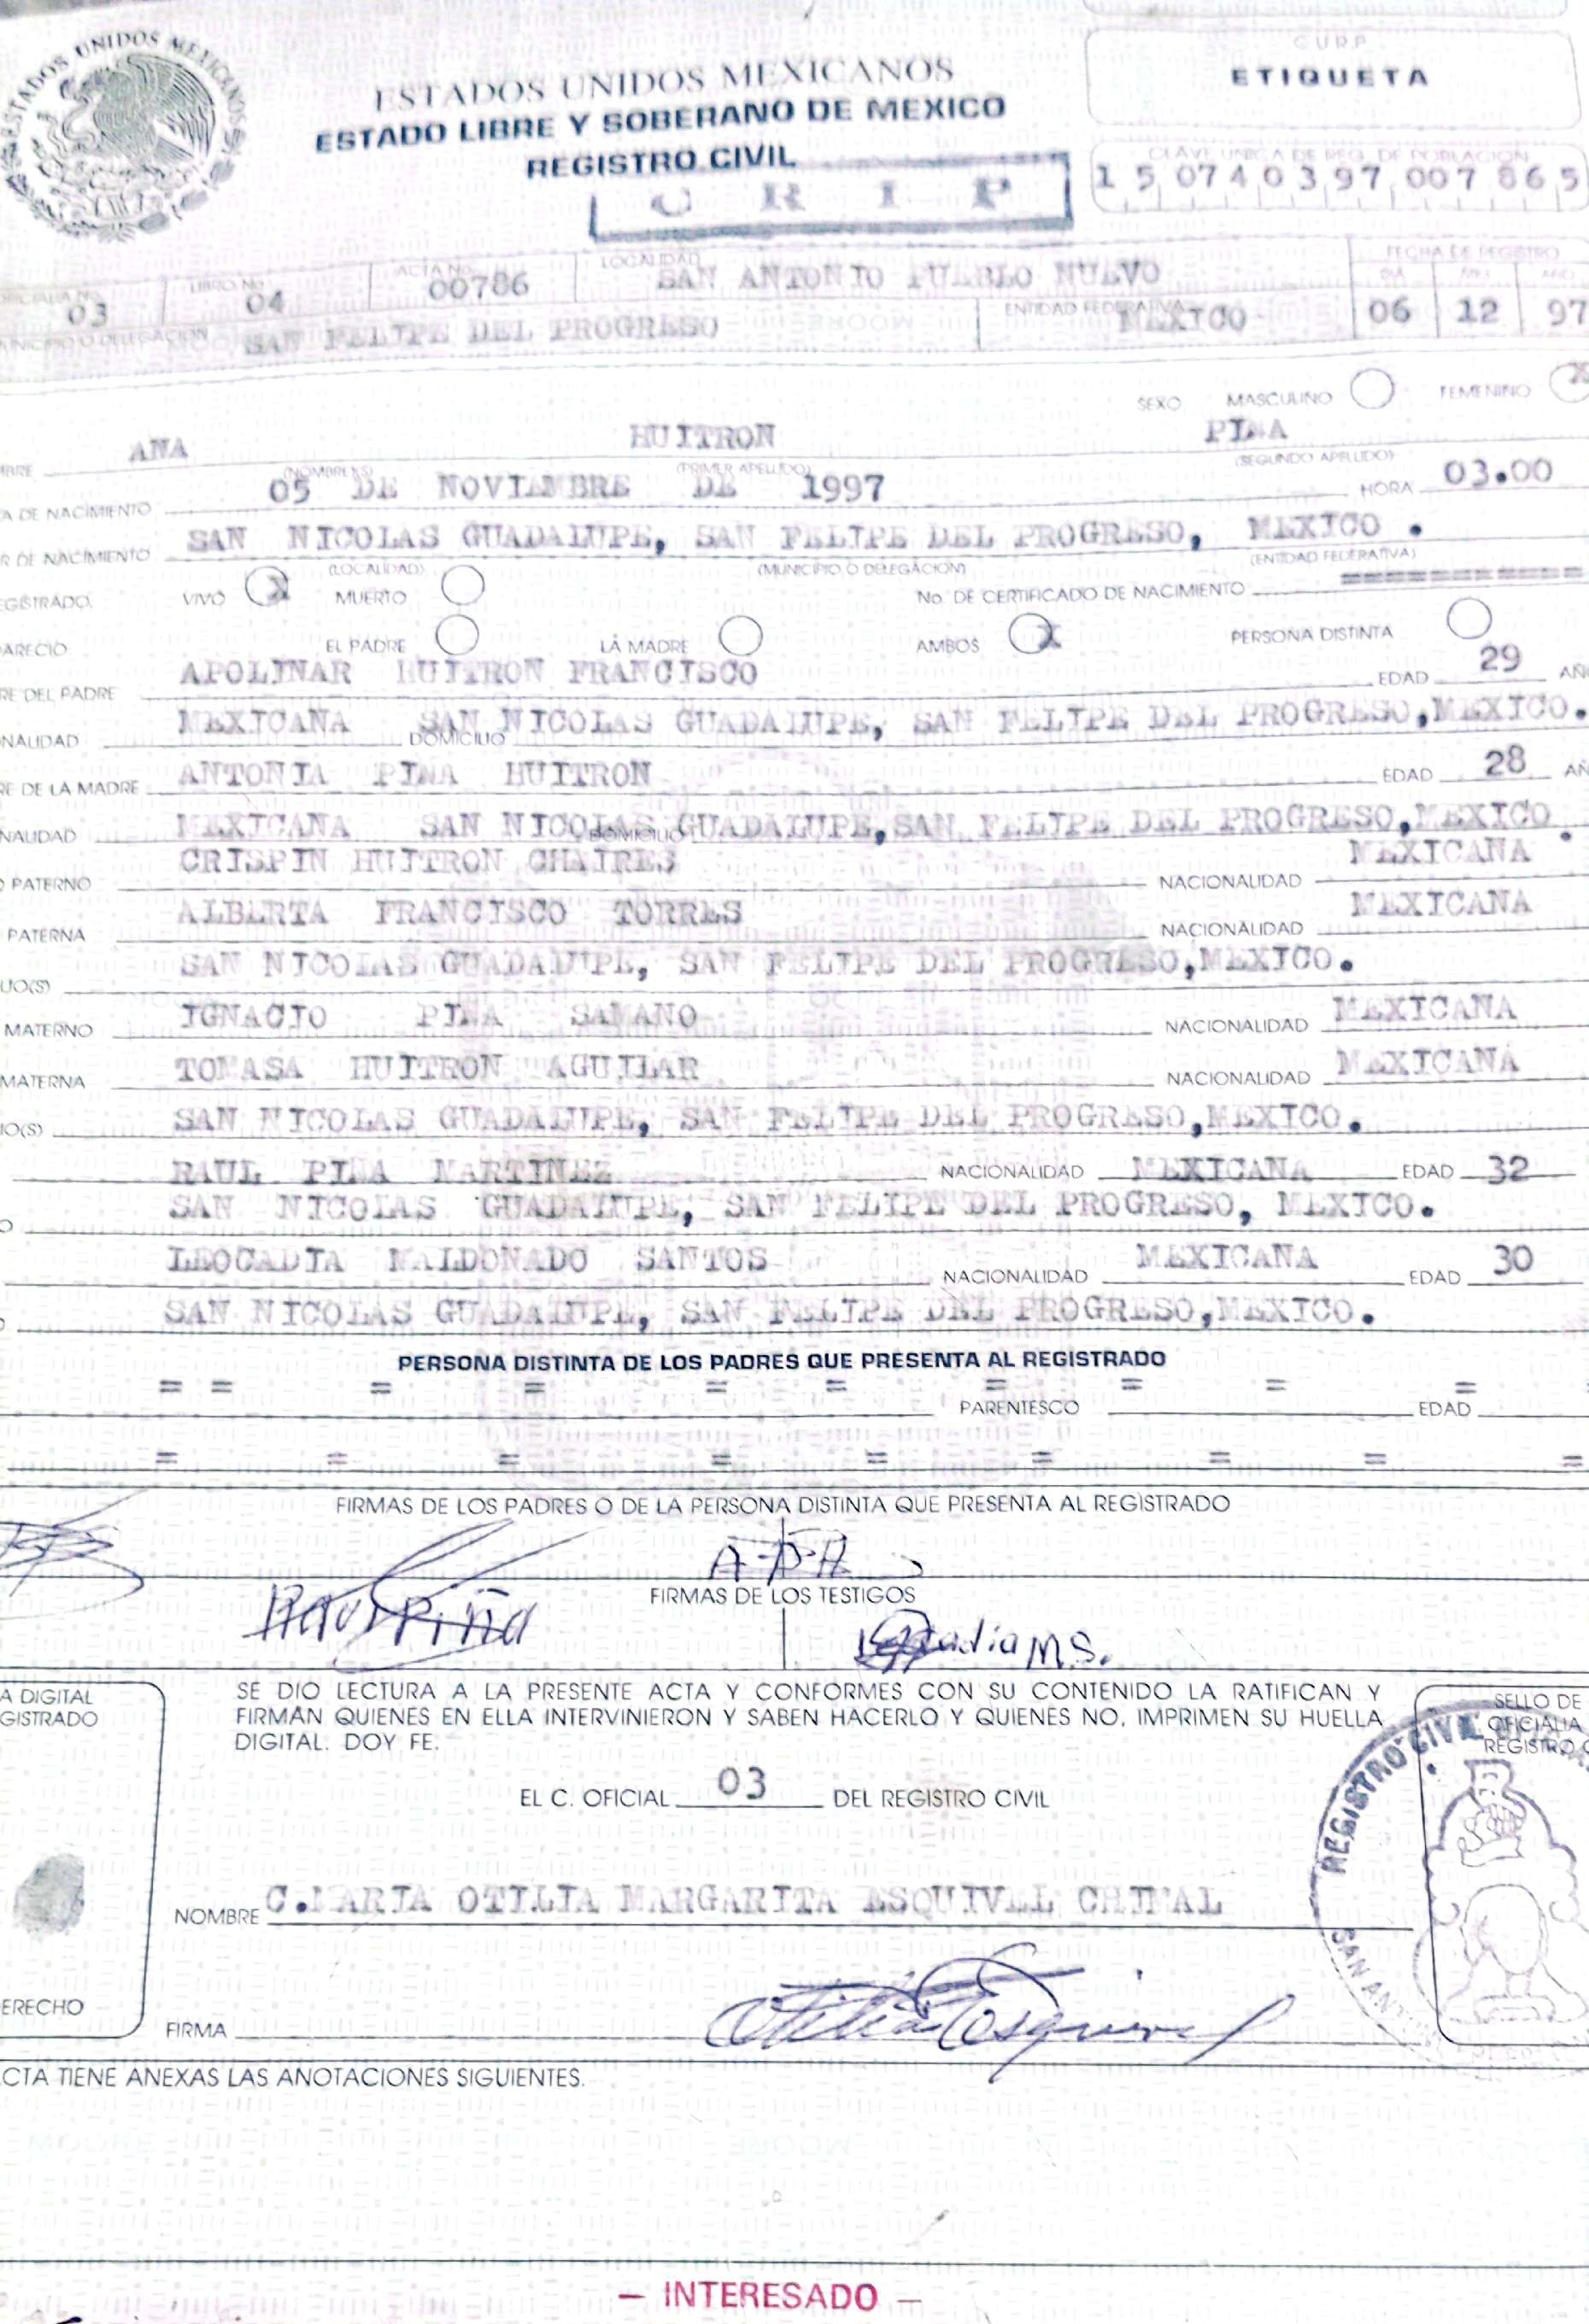 ESTADOS UNIDOS MEXICANOS
ESTADOS UNIDOS MEXICANOS
ESTADO LIBRE Y SOBERANO DE MEXICO
REGISTRO CIVIL
C R I P
C.U.R.P.
ETIQUETA
CLAVE UNICA DE REG. DE POBLACION
15 074 03 97 007 86 5
OFICIALIA No. 03 LIBRO No. 04 ACTA No. 00786 LOCALIDAD SAN ANTONIO PUEBLO NUEVO FECHA DE REGISTRO
DIA MES AÑO
MUNICIPIO O DELEGACION SAN FELIPE DEL PROGRESO ENTIDAD FEDERATIVA MEXICO 06 12 97
SEXO MASCULINO FEMENINO X
MBRE ANA HUITRON PIÑA
(NOMBRE(S) (PRIMER APELLIDO) (SEGUNDO APELLIDO)
A DE NACIMIENTO 05 DE NOVIEMBRE DE 1997 HORA 03.00
R DE NACIMIENTO SAN NICOLAS GUADALUPE, SAN FELIPE DEL PROGRESO, MEXICO.
(LOCALIDAD) (MUNICIPIO O DELEGACION) (ENTIDAD FEDERATIVA)
EGISTRADO. VIVO X MUERTO No. DE CERTIFICADO DE NACIMIENTO ============
PARECIO EL PADRE LA MADRE AMBOS X PERSONA DISTINTA
RE DEL PADRE APOLINAR HUITRON FRANCISCO EDAD 29 AÑ
NALIDAD MEXICANA DOMICILIO SAN NICOLAS GUADALUPE, SAN FELIPE DEL PROGRESO,MEXICO.
RE DE LA MADRE ANTONIA PIÑA HUITRON EDAD 28 AÑ
NALIDAD MEXICANA DOMICILIO SAN NICOLAS GUADALUPE,SAN FELIPE DEL PROGRESO,MEXICO.
O PATERNO CRISPIN HUITRON CHAIRES NACIONALIDAD MEXICANA
PATERNA ALBERTA FRANCISCO TORRES NACIONALIDAD MEXICANA
LIO(S) SAN NICOLAS GUADALUPE, SAN FELIPE DEL PROGRESO,MEXICO.
MATERNO IGNACIO PIÑA SAMANO NACIONALIDAD MEXICANA
MATERNA TOMASA HUITRON AGUILAR NACIONALIDAD MEXICANA
IO(S) SAN NICOLAS GUADALUPE, SAN FELIPE DEL PROGRESO,MEXICO.
RAUL PIÑA MARTINEZ NACIONALIDAD MEXICANA EDAD 32
O SAN NICOLAS GUADALUPE, SAN FELIPE DEL PROGRESO, MEXICO.
LEOCADIA MALDONADO SANTOS NACIONALIDAD MEXICANA EDAD 30
O SAN NICOLAS GUADALUPE, SAN FELIPE DEL PROGRESO,MEXICO.
PERSONA DISTINTA DE LOS PADRES QUE PRESENTA AL REGISTRADO
= = = = = = = = = =
PARENTESCO EDAD
= = = = = = = = =
FIRMAS DE LOS PADRES O DE LA PERSONA DISTINTA QUE PRESENTA AL REGISTRADO
A-P-H
FIRMAS DE LOS TESTIGOS
Raul Piña
M.S.
A DIGITAL
GISTRADO
SE DIO LECTURA A LA PRESENTE ACTA Y CONFORMES CON SU CONTENIDO LA RATIFICAN Y
FIRMAN QUIENES EN ELLA INTERVINIERON Y SABEN HACERLO Y QUIENES NO, IMPRIMEN SU HUELLA
DIGITAL. DOY FE.
SELLO DE
OFICIALIA
REGISTRO C
REGISTRO CIVIL
SAN ANT
EL C. OFICIAL 03 DEL REGISTRO CIVIL
NOMBRE C.MARIA OTILIA MARGARITA ESQUIVEL CHIMAL
ERECHO
FIRMA Otilia Esquivel
CTA TIENE ANEXAS LAS ANOTACIONES SIGUIENTES.
MOORE
— INTERESADO —